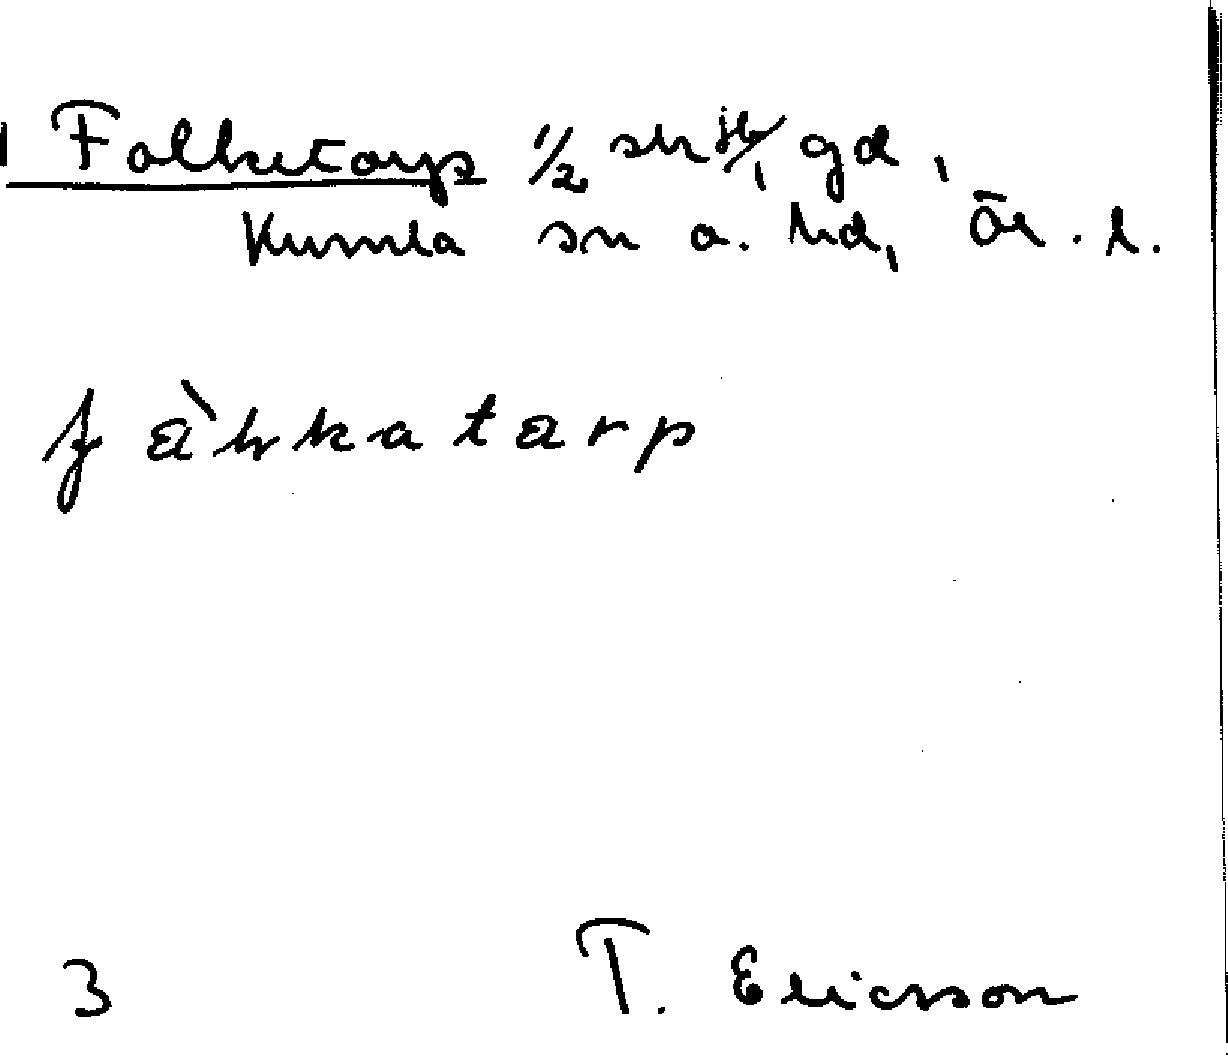 Folketorp ½ sk jb/1 gd,
Kumla sn o. hd, Ör. l.
fàłkatarp
3 T. Ericsson